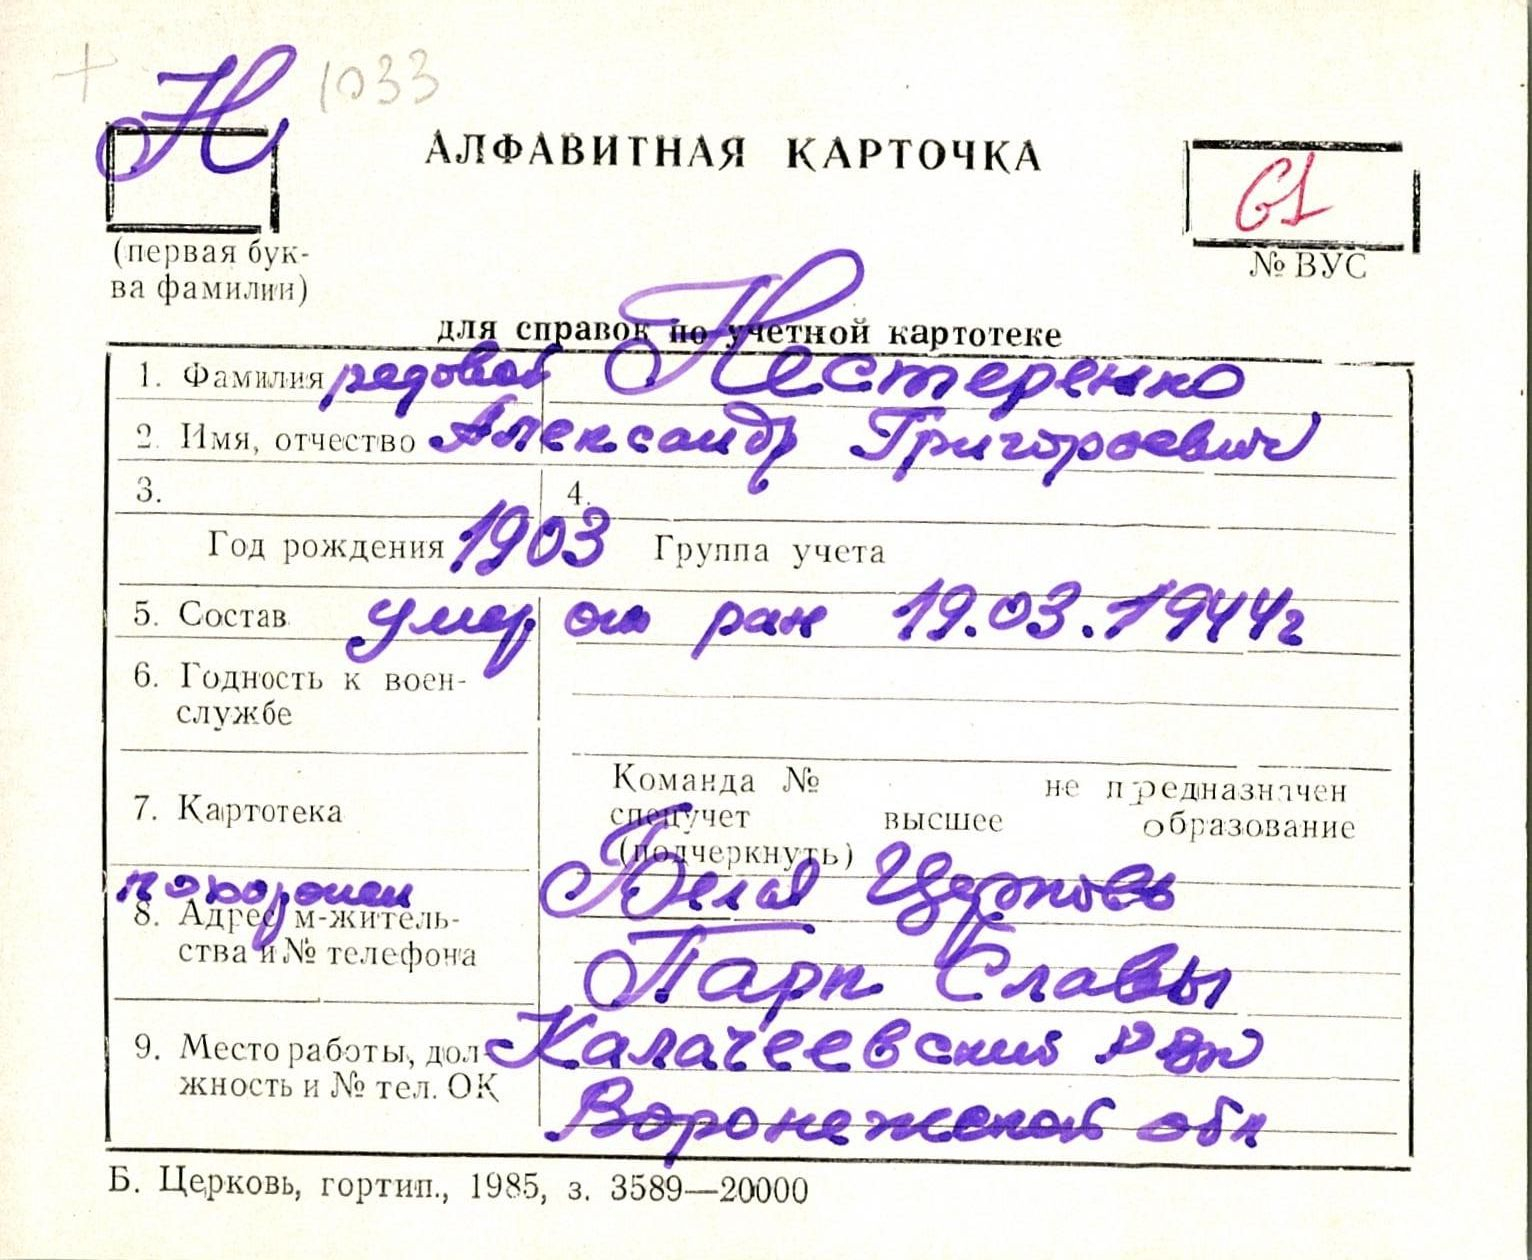 + Н 1033
АЛФАВИТНАЯ КАРТОЧКА
61
(первая бук-
ва фамилии)
№ ВУС
для справок по учетной картотеке
1. Фамилия рядовой Нестеренко
2. Имя, отчество Александр Григорьевич
3. 4.
Год рождения 1903 Группа учета
5. Состав умер от ран 19.03.1944г
6. Годность к воен-
службе
7. Картотека
Команда № не предназначен
спецучет высшее образование
(подчеркнуть)
похоронен Белая Церковь
8. Адрес м-житель-
ства и № телефона
Парк Славы
9. Место работы, дол-
жность и № тел. ОК
Калачеевский РВК
Воронежской обл
Б. Церковь, гортип., 1985, з. 3589—20000